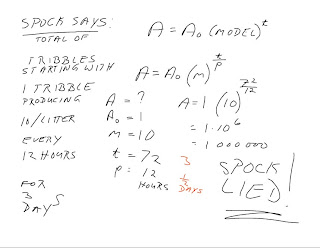 SPOCK SAYS:
TOTAL OF
TRIBBLES
STARTING WITH
1 TRIBBLE
PRODUCING
10/LITTER
EVERY
12 HOURS
FOR
3
DAYS
A = A₀ (MODEL)^t
A = A₀ (M)^(t/P)
A = ?
A₀ = 1
M = 10
t = 72
P = 12
HOURS
3
1/2
DAYS
A = 1 (10)^(72/12)
= 1 · 10⁶
= 1 000 000
SPOCK
LIED!